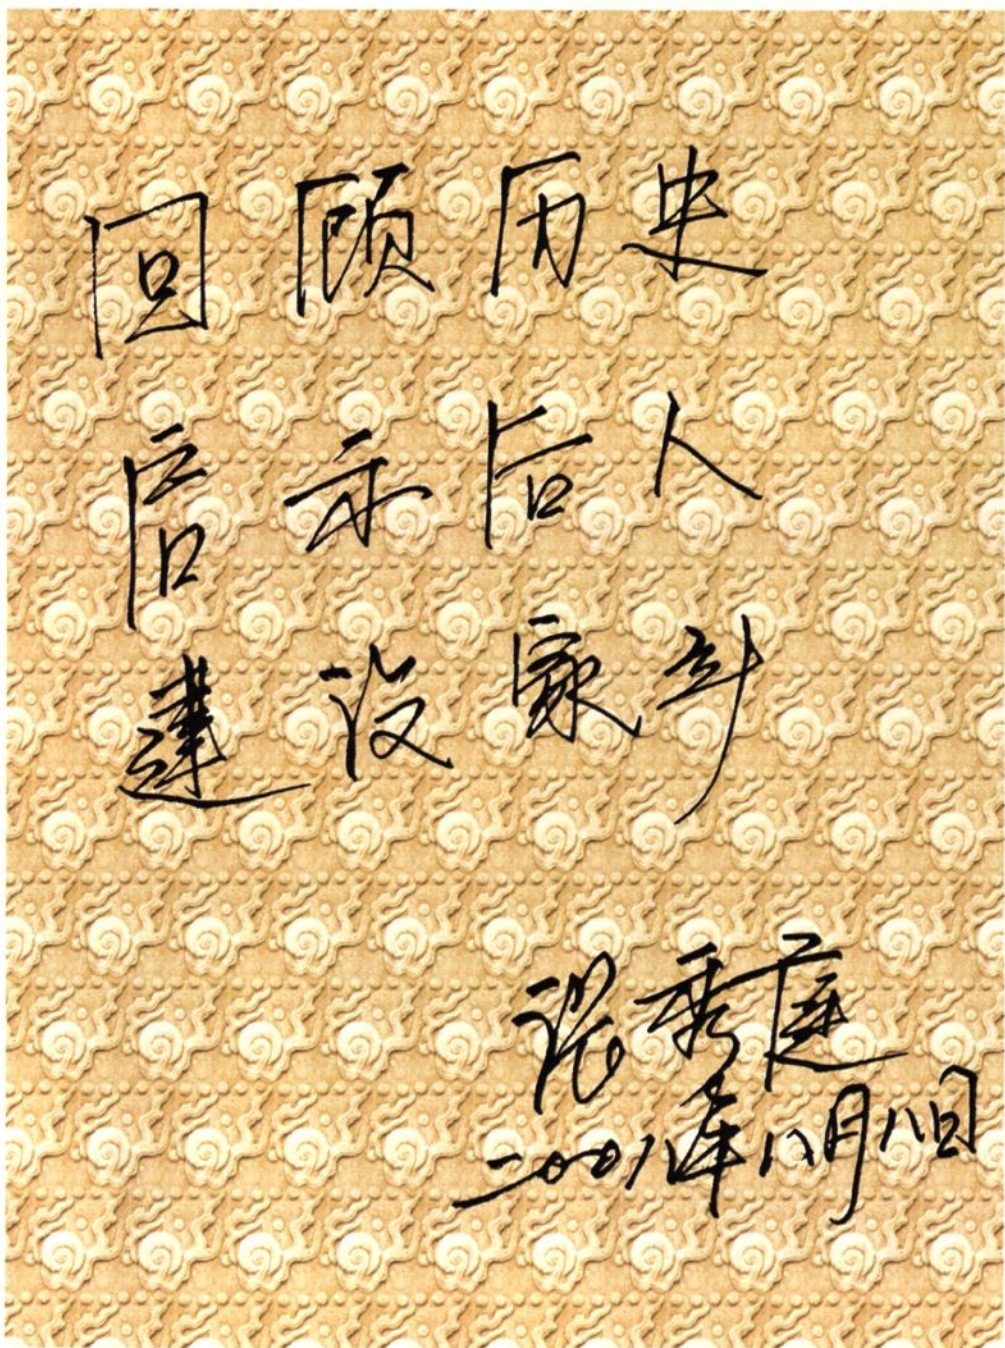 回顾历史
启示后人
建设家乡
张秀庭
二〇〇八年八月八日